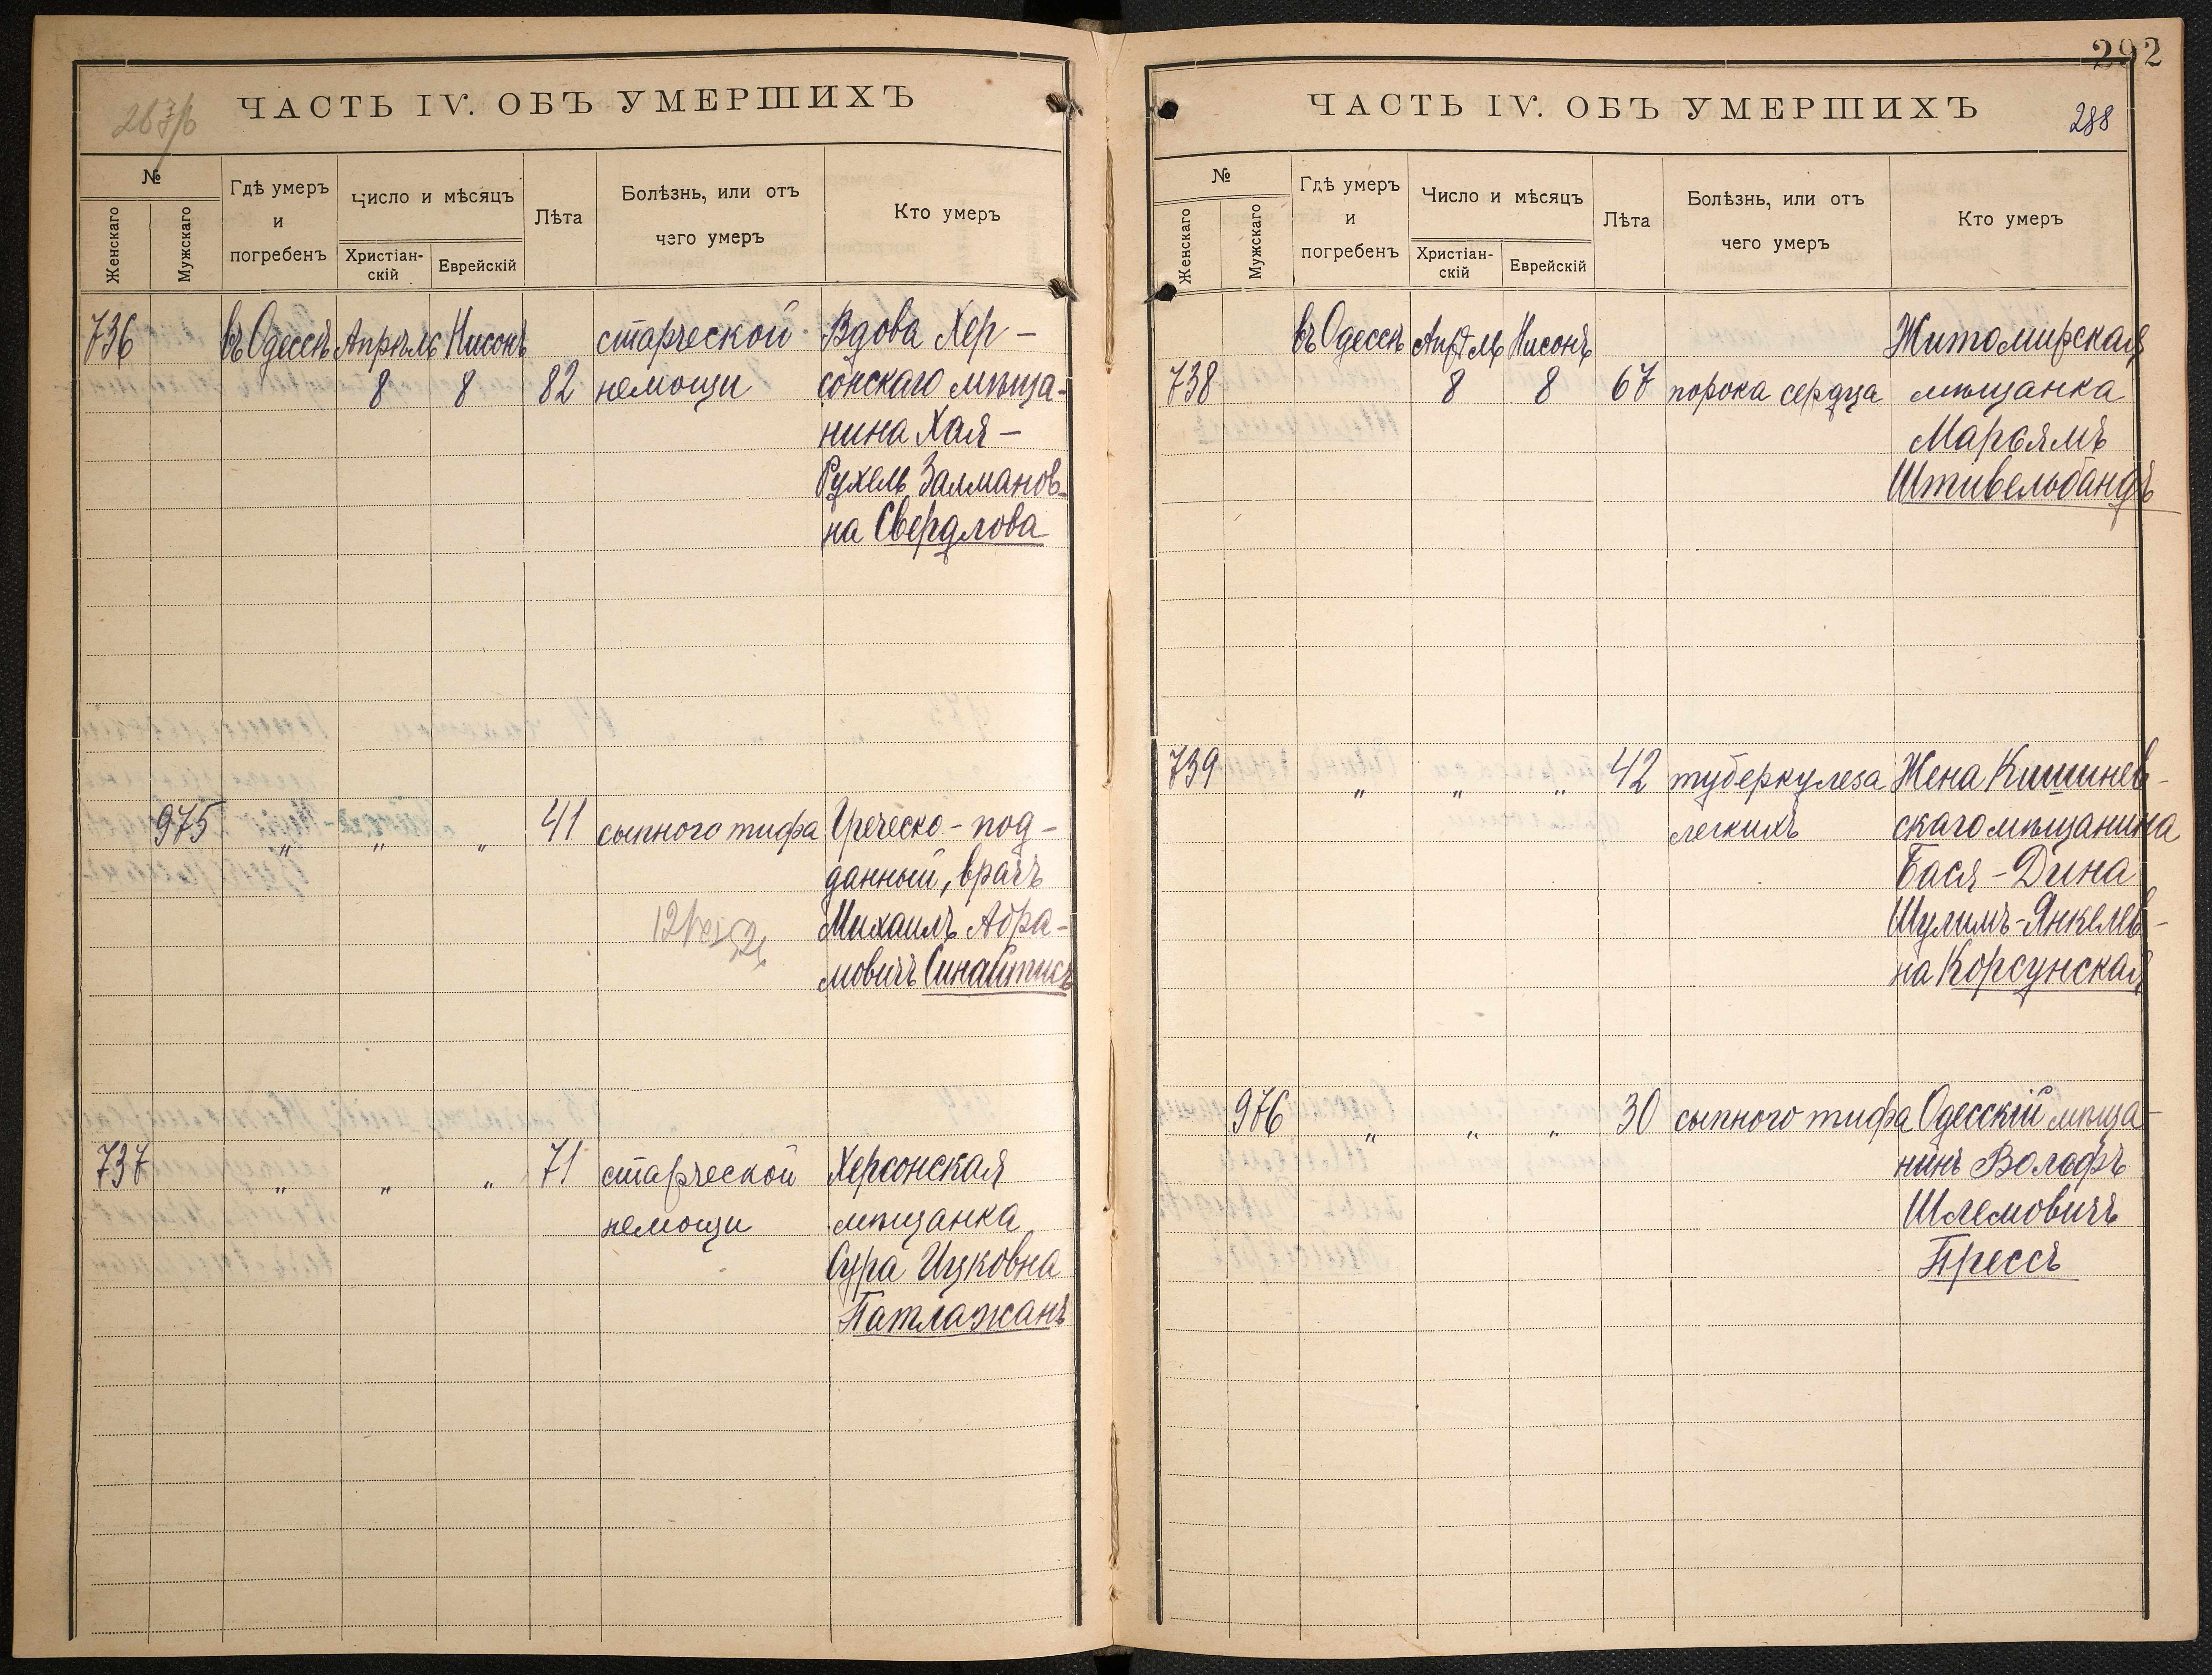 ЧАСТЬ IV. ОБЪ УМЕРШИХЪ
№
Женскаго
Мужскаго
Гдѣ умеръ
и
погребенъ
Число и мѣсяцъ
Христіан-
скій
Еврейскій
Лѣта
Болѣзнь, или отъ
чего умеръ
Кто умеръ
736 въ Одессѣ Апрѣль Нисонъ старческой Вдова Хер-
8 8 82 немощи сонскаго мѣща-
нина Хая-
Рухель Залманов-
на Свердлова
975 „ „ „ 41 сыпного тифа Греческо-под-
данный, врачъ
Михаилъ Абра-
мовичъ Синайтисъ
737 „ „ „ 71 старческой Херсонская
немощи мѣщанка
Сура Ицковна
Патлажанъ
292
ЧАСТЬ IV. ОБЪ УМЕРШИХЪ
288
№
Женскаго
Мужскаго
Гдѣ умеръ
и
погребенъ
Число и мѣсяцъ
Христіан-
скій
Еврейскій
Лѣта
Болѣзнь, или отъ
чего умеръ
Кто умеръ
въ Одессѣ Апрѣль Нисонъ Житомирская
738 8 8 67 порока сердца мѣщанка
Марьямъ
Штивельбандъ
739 „ „ „ 42 туберкулеза Жена Кишинев-
легкихъ скаго мѣщанина
Бася-Дина
Шулимъ-Янкелев-
на Корсунская
976 „ „ „ 30 сыпного тифа Одесскій мѣща-
нинъ Вольфъ
Шлемовичъ
Прессъ